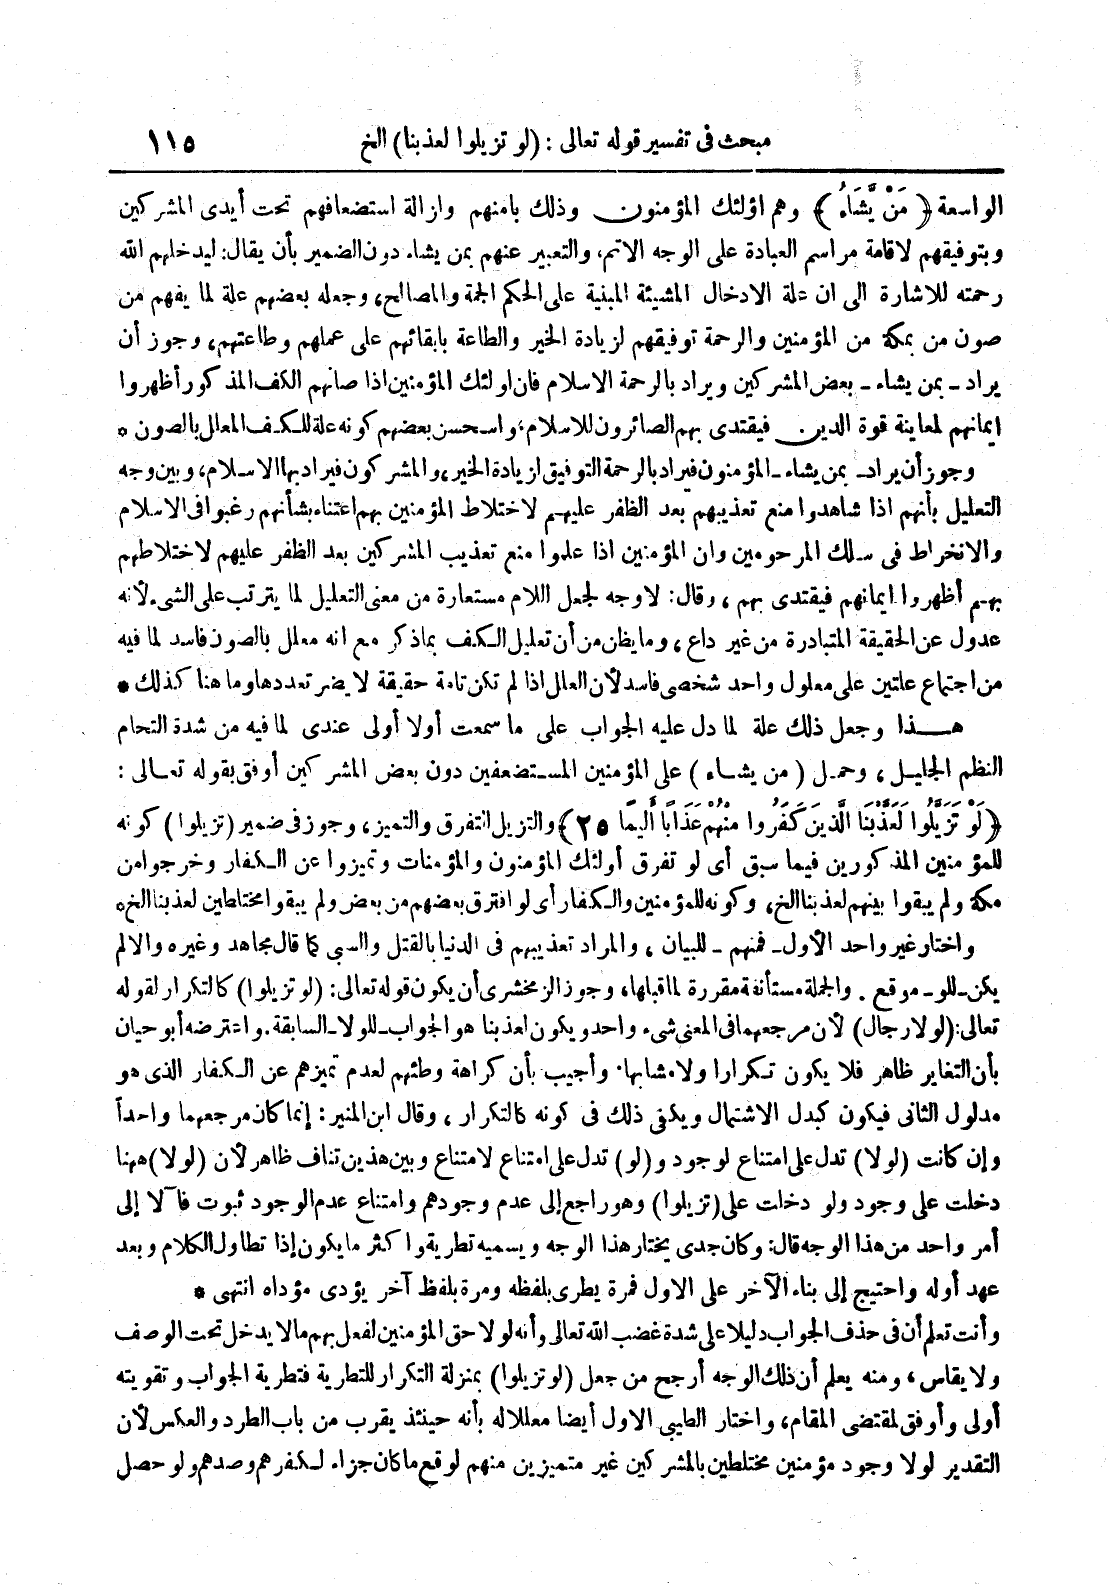 مبحث فى تفسير قوله تعالى : (لو تزيلوا لعذبنا) الخ ١١٥
الواسعة ﴿ مَنْ يَّشَاءُ ﴾ وهم اؤلئك المؤمنون وذلك بامنهم وازالة استضعافهم تحت أيدى المشركين
وبتوفيقهم لاقامة مراسم العبادة على الوجه الاتم، والتعبير عنهم بمن يشاء دون الضمير بأن يقال: ليدخلهم الله
رحمته للاشارة الى ان علة الادخال المشيئة المبنية على الحكم الجمة والمصالح، وجعله بعضهم علة لما يفهم من
صون من بمكة من المؤمنين والرحمة توفيقهم لزيادة الخير والطاعة بابقائهم على عملهم وطاعتهم، وجوز أن
يراد ـ بمن يشاء ـ بعض المشركين ويراد بالرحمة الاسلام فان اولئك المؤمنين اذا صانهم الكف المذكور أظهروا
ايمانهم لمعاينة قوة الدين فيقتدى بهم الصائرون للاسلام، واسحسن بعضهم كونه علة للكف المعال بالصون *
وجوز أن يراد ـ بمن يشاء ـ المؤمنون فيراد بالرحمة التوفيق لزيادة الخير، والمشركون فيراد بها الاسلام، وبين وجه
التعليل بأنهم اذا شاهدوا منع تعذيبهم بعد الظفر عليهم لاختلاط المؤمنين بهم اعتناء بشأنهم رغبوا فى الاسلام
والانخراط فى سلك المرحومين وان المؤمنين اذا علموا منع تعذيب المشركين بعد الظفر عليهم لاختلاطهم
بهم أظهروا ايمانهم فيقتدى بهم ، وقال: لاوجه لجعل اللام مستعارة من معنى التعليل لما يترتب على الشىء لأنه
عدول عن الحقيقة المتبادرة من غير داع، وما يظن من أن تعليل الكف بماذكر مع انه معلل بالصون فاسد لما فيه
من اجتماع علتين على معلول واحد شخصى فاسد لأن العال اذا لم تكن تامة حقيقة لا يضر تعددها وما هنا كذلك *
هــذا وجعل ذلك علة لما دل عليه الجواب على ما سمعت أولا أولى عندى لما فيه من شدة التحام
النظم الجليل ، وحمل ( من يشاء ) على المؤمنين المستضعفين دون بعض المشركين أوفق بقوله تعالى :
﴿ لَوْ تَزَيَّلُوا لَعَذَّبْنَا الَّذِينَ كَفَرُوا مِنْهُمْ عَذَابًا أَلِيمًا ٢٥ ﴾ والتزيل التفرق والتميز، وجوز فى ضمير (تزيلوا) كونه
للمؤمنين المذكورين فيما سبق أى لو تفرق أولئك المؤمنون والمؤمنات وتميزوا عن الكفار وخرجوا من
مكة ولم يبقوا بينهم لعذبنا الخ، وكونه للمؤمنين والكفار أى لو افترق بعضهم من بعض ولم يبقوا مختلطين لعذبنا الخ *
واختار غير واحد الأول ـ فمنهم ـ للبيان ، والمراد تعذيبهم فى الدنيا بالقتل والسبى كما قال مجاهد وغيره والا لم
يكن ـ للو ـ موقع . والجملة مستأنفة مقررة لما قبلها، وجوز الزمخشرى أن يكون قوله تعالى: (لو تزيلوا) كالتكرار لقوله
تعالى: (لولا رجال) لأن مرجعهما فى المعنى شىء واحد ويكون لعذبنا هو الجواب ـ للولا ـ السابقة. واعترضه أبو حيان
بأن التغاير ظاهر فلا يكون تكرارا ولا مشابها. وأجيب بأن كراهة وطئهم لعدم تميزهم عن الكفار الذى هو
مدلول الثانى فيكون كبدل الاشتمال ويكفى ذلك فى كونه كالتكرار ، وقال ابن المنير : إنما كان مرجعهما واحداً
وإن كانت (لولا) تدل على امتناع لوجود و(لو) تدل على امتناع لامتناع وبين هذين تناف ظاهر لأن (لولا) ههنا
دخلت على وجود ولو دخلت على (تزيلوا) وهو راجع إلى عدم وجودهم وامتناع عدم الوجود ثبوت فآلا إلى
أمر واحد من هذا الوجه قال: وكان جدى يختار هذا الوجه ويسميه تطرية واكثر ما يكون إذا تطاول الكلام وبعد
عهد أوله واحتيج إلى بناء الآخر على الاول فمرة يطرى بلفظه ومرة بلفظ آخر يؤدى مؤداه انتهى *
وأنت تعلم أن فى حذف الجواب دليلا على شدة غضب الله تعالى وأنه لولا حق المؤمنين لفعل بهم مالا يدخل تحت الوصف
ولا يقاس، ومنه يعلم أن ذلك الوجه أرجح من جعل (لو تزيلوا) بمنزلة التكرار للتطرية فتطرية الجواب وتقويته
أولى وأوفق لمقتضى المقام، واختار الطيبى الاول أيضا معللا له بأنه حينئذ يقرب من باب الطرد والعكس لأن
التقدير لولا وجود مؤمنين مختلطين بالمشركين غير متميزين منهم لوقع ما كان جزاء لكفرهم وصدهم ولو حصل